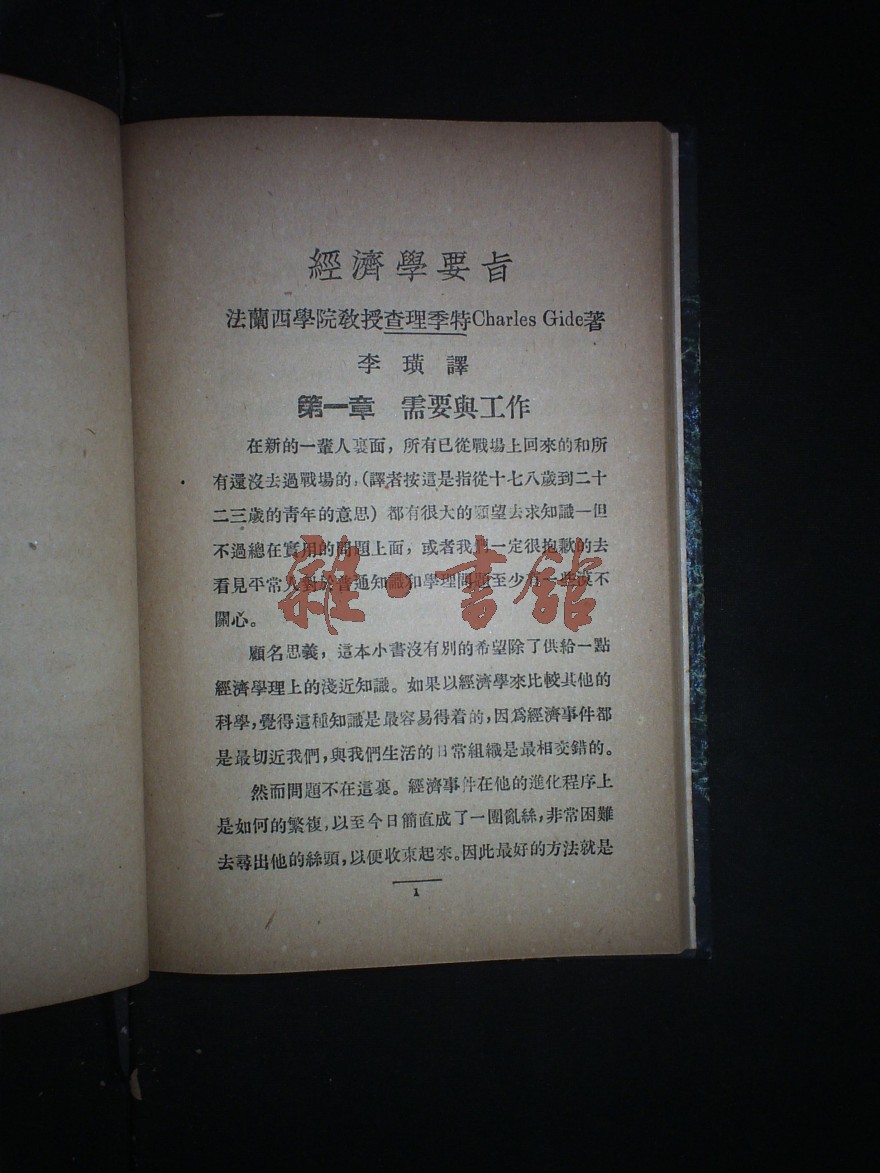 經濟學要旨
法蘭西學院敎授查理季特Charles Gide著
李璜譯
第一章 需要與工作
在新的一輩人裏面，所有已從戰場上回來的和所
有還沒去過戰場的，(譯者按這是指從十七八歲到二十
二三歲的靑年的意思) 都有很大的願望去求知識—但
不過總在實用的問題上面，或者我們一定很抱歉的去
看見平常人對於普通知識和學理問題至少有一些漠不
關心。
顧名思義，這本小書沒有別的希望除了供給一點
經濟學理上的淺近知識。如果以經濟學來比較其他的
科學，覺得這種知識是最容易得着的，因爲經濟事件都
是最切近我們，與我們生活的日常組織是最相交錯的。
然而問題不在這裏。經濟事件在他的進化程序上
是如何的繁複，以至今日簡直成了一團亂絲，非常困難
去尋出他的絲頭，以便收束起來。因此最好的方法就是
1
雜·書館